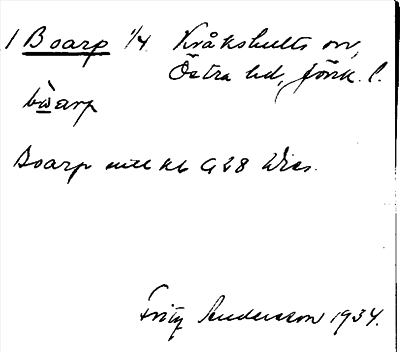 1 Boarp 1/4. Kråkshults sn,
Östra hd, Jönk. l.
bωarp
Boarp
Fritz Andersson 1934.